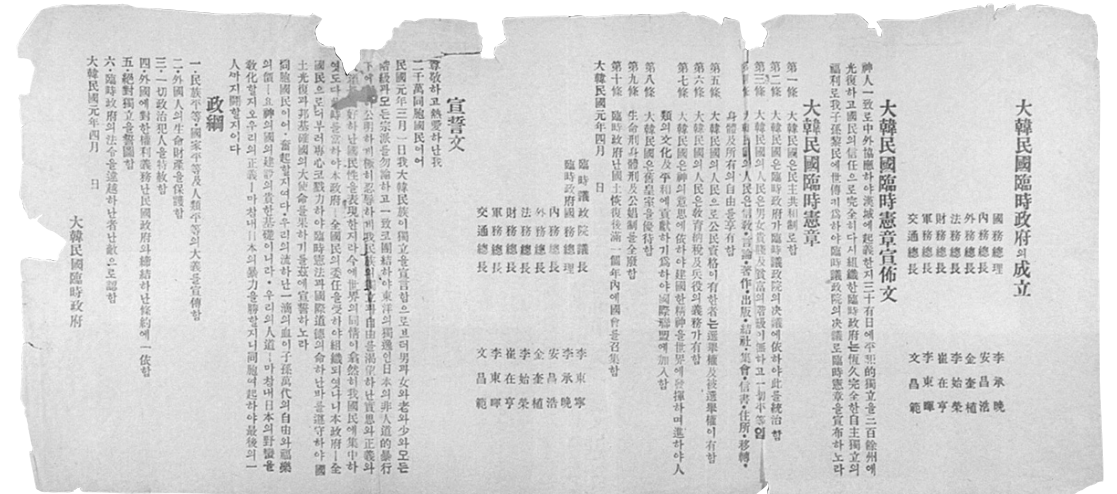 大韓民國臨時政府의成立
國務總理 李承晩
內務總長 安昌浩
外務總長 金奎植
法務總長 李始榮
財務總長 崔在亨
軍務總長 李東暉
交通總長 文昌範
大韓民國臨時憲章宣佈文
神人一致로中外協應하야漢城에起義한지三十有日에平和的獨立을三百餘州에
光復하고國民의信任으로完全히다시組織한臨時政府는恒久完全한自主獨立의
福利로我子孫黎民에世傳키爲하야臨時議政院의決議로臨時憲章을宣布하노라
大韓民國臨時憲章
第一條 大韓民國은民主共和制로함
第二條 大韓民國은臨時政府가臨時議政院의決議에依하야此를統治함
第三條 大韓民國의人民은男女貴賤及貧富의階級이無하고一切平等임
大韓民國의人民은信敎・言論・著作・出版・結社・集會・信書・住所・移轉・
身體及所有의自由를享有함
第五條 大韓民國의人民으로公民資格이有한者는選擧權及被選擧權이有함
第六條 大韓民國의人民은敎育納稅及兵役의義務가有함
第七條 大韓民國은神의意思에依하야建國한精神을世界에發揮하며進하야人
類의文化及平和에貢獻하기爲하야國際聯盟에加入함
第八條 大韓民國은舊皇室을優待함
第九條 生命刑身體刑及公娼制를全廢함
第十條 臨時政府난國土恢復後滿一個年內에國會를召集함
大韓民國元年四月 日
臨時議政院議長 李東寧
臨時政府國務總理 李承晩
內務總長 安昌浩
外務總長 金奎植
法務總長 李始榮
財務總長 崔在亨
軍務總長 李東暉
交通總長 文昌範
宣誓文
尊敬하고熱愛하난我
二千萬同胞國民이여
民國元年三月一日我大韓民族이獨立을宣言함으로브터男과女와老와少와모든
階級과모든宗派를勿論하고一致코團結하야東洋의獨逸인日本의非人道的暴行
下에公明하게極히忍辱하게我民族의獨立과自由를渴望하난實思와正義와
好하난國民性을表現한지라今에世界의同情이翕然히我國民에集中하
엿도다此時를當하야本政府ㅣ全國民의委任을受하야組織되엿나니本政府ㅣ全
國民으로더부러專心코戮力하야臨時憲法과國際道德의命하난바를遵守하야國
土光復과邦基確國의大使命을果하기를玆에宣誓하노라
同胞國民이여・奮起할지어다・우리의流하난一滴의血이子孫萬代의自由와福樂
의價ㅣ요神의國의建設의貴한基礎이니라・우리의人道ㅣ마참내日本의野蠻을
敎化할지오우리의正義ㅣ마참내日本의暴力을勝할지니同胞여起하야最後의一
人까지鬪할지어다
政綱
一・民族平等・國家平等及人類平等의大義를宣傳함
二・外國人의生命財產을保護함
三・一切政治犯人을特赦함
四・外國에對한權利義務난民國政府와締結하난條約에一依함
五・絕對獨立을誓圖함
六・臨時政府의法令을違越하난者난敵으로認함
大韓民國元年四月 日
大韓民國臨時政府